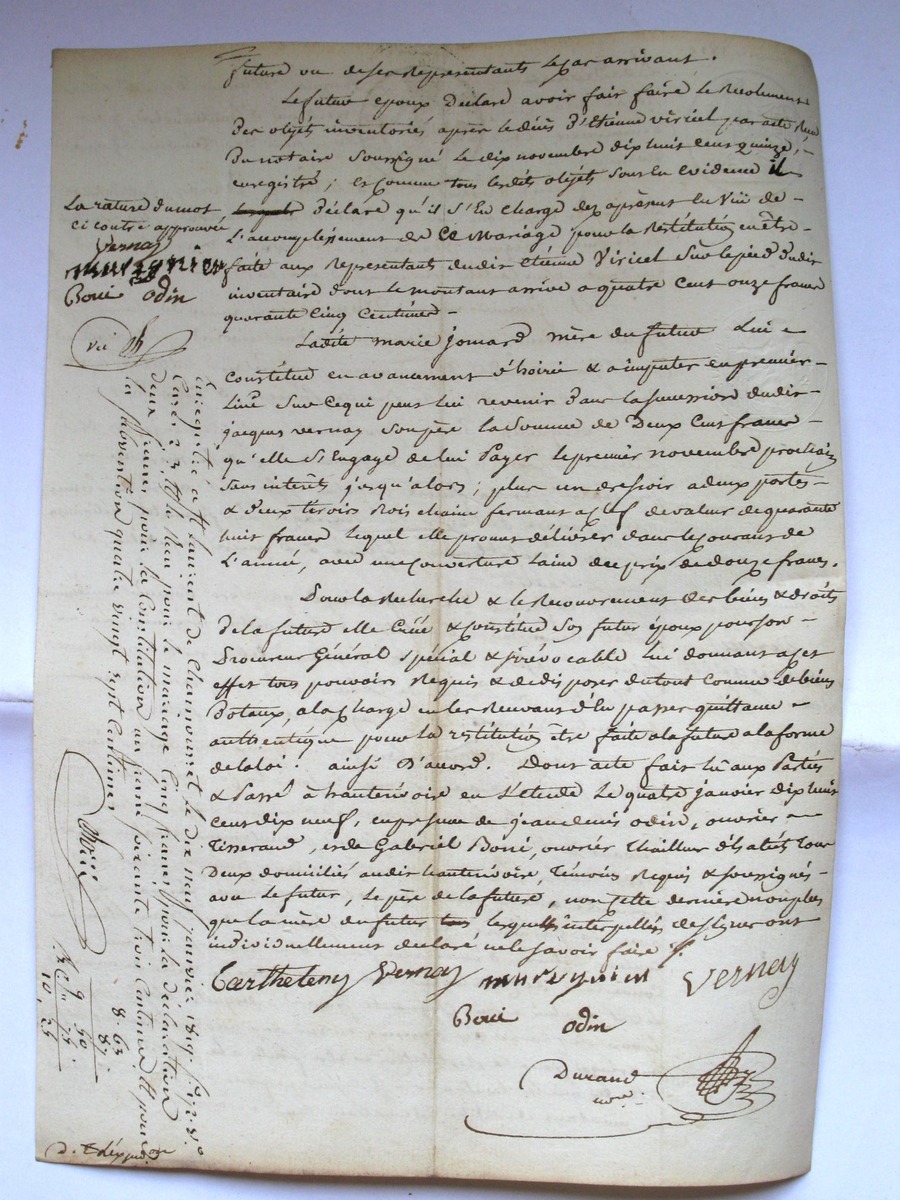 future ou de ses représentants le cas arrivant.
Le futur époux Déclare avoir fait faire le Recolement
Des objets inventoriés après le décès D'Etienne viricel par acte Reçu
Du notaire soussigné le dix novembre dix huit cent quinze,
enregistré; et comme tous lesdits objets sont en évidence il
Déclare qu'il s'en charge dès aprèsent en vüe de
L'accomplissement de ce Mariage pour la Restitution en être
faite aux Représentants dudit étienne Viricel sur le pied dudit
inventaire dont le montant arrive a quatre cent onze francs
quarante cinq Centimes
Ladite marie jomard mère du futur Lui
Constitue en avancement d'hoirie & a imputer en premier
Lieu sur ce qui peut lui revenir Dans la succession dudit
jacques vernay son père la somme de Deux Cent francs
qu'elle s'engage de lui Payer le premier novembre prochain
sans intérêts jusqu'alors; plus un dressoir a deux portes
& deux tiroirs Bois chaine fermant a clef de valeur de quarante
huit francs lequel elle promet délivrer dans le courant de
L'année, avec une couverture Laine du prix de douze francs.
Pour la Recherche & le Recouvrement des biens & droits
De la future elle Crée & constitue son futur époux pour son
Procureur Général spécial & irrévocable lui donnant a cet
effet tous pouvoirs Requis & de disposer du tout comme de biens
Dotaux, a la charge en les Recevant d'en passer quittance
authentique pour la restitution être faite a la future a la forme
de la loi: ainsi D'accord. Dont acte fait lu aux Parties
& Passé à hauterivoire en L'etude Le quatre janvier dix huit
Cent dix neuf, en présence de jean denis odin, ouvrier
Tisserand, et de Gabriel Boué, ouvrier Tailleur d'habits tous
Deux domiciliés audit hauterivoire, Témoins Requis & soussignés
avec Le futur, Le père de la future, non cette dernière non plus
que la mère du futur lesquelles interpellées de signer ont
individuellement déclaré ne le savoir faire
Barthelemy Vernay Murignieu Vernay
Boué odin
Durand
nore.
La rature du mot
ci contre approuvée
Vernay
Murignieu
Boué odin
Vu
Enregistré a St Laurent de Chamousset le dix neuf janvier 1819.
Reçu pour le mariage cinq francs pour la déclaration
deux francs pour la Constitution un franc soixante trois Centimes & pour
la subvention quatre vingt sept Centimes
8. 63
87
9 50
75
10, 25